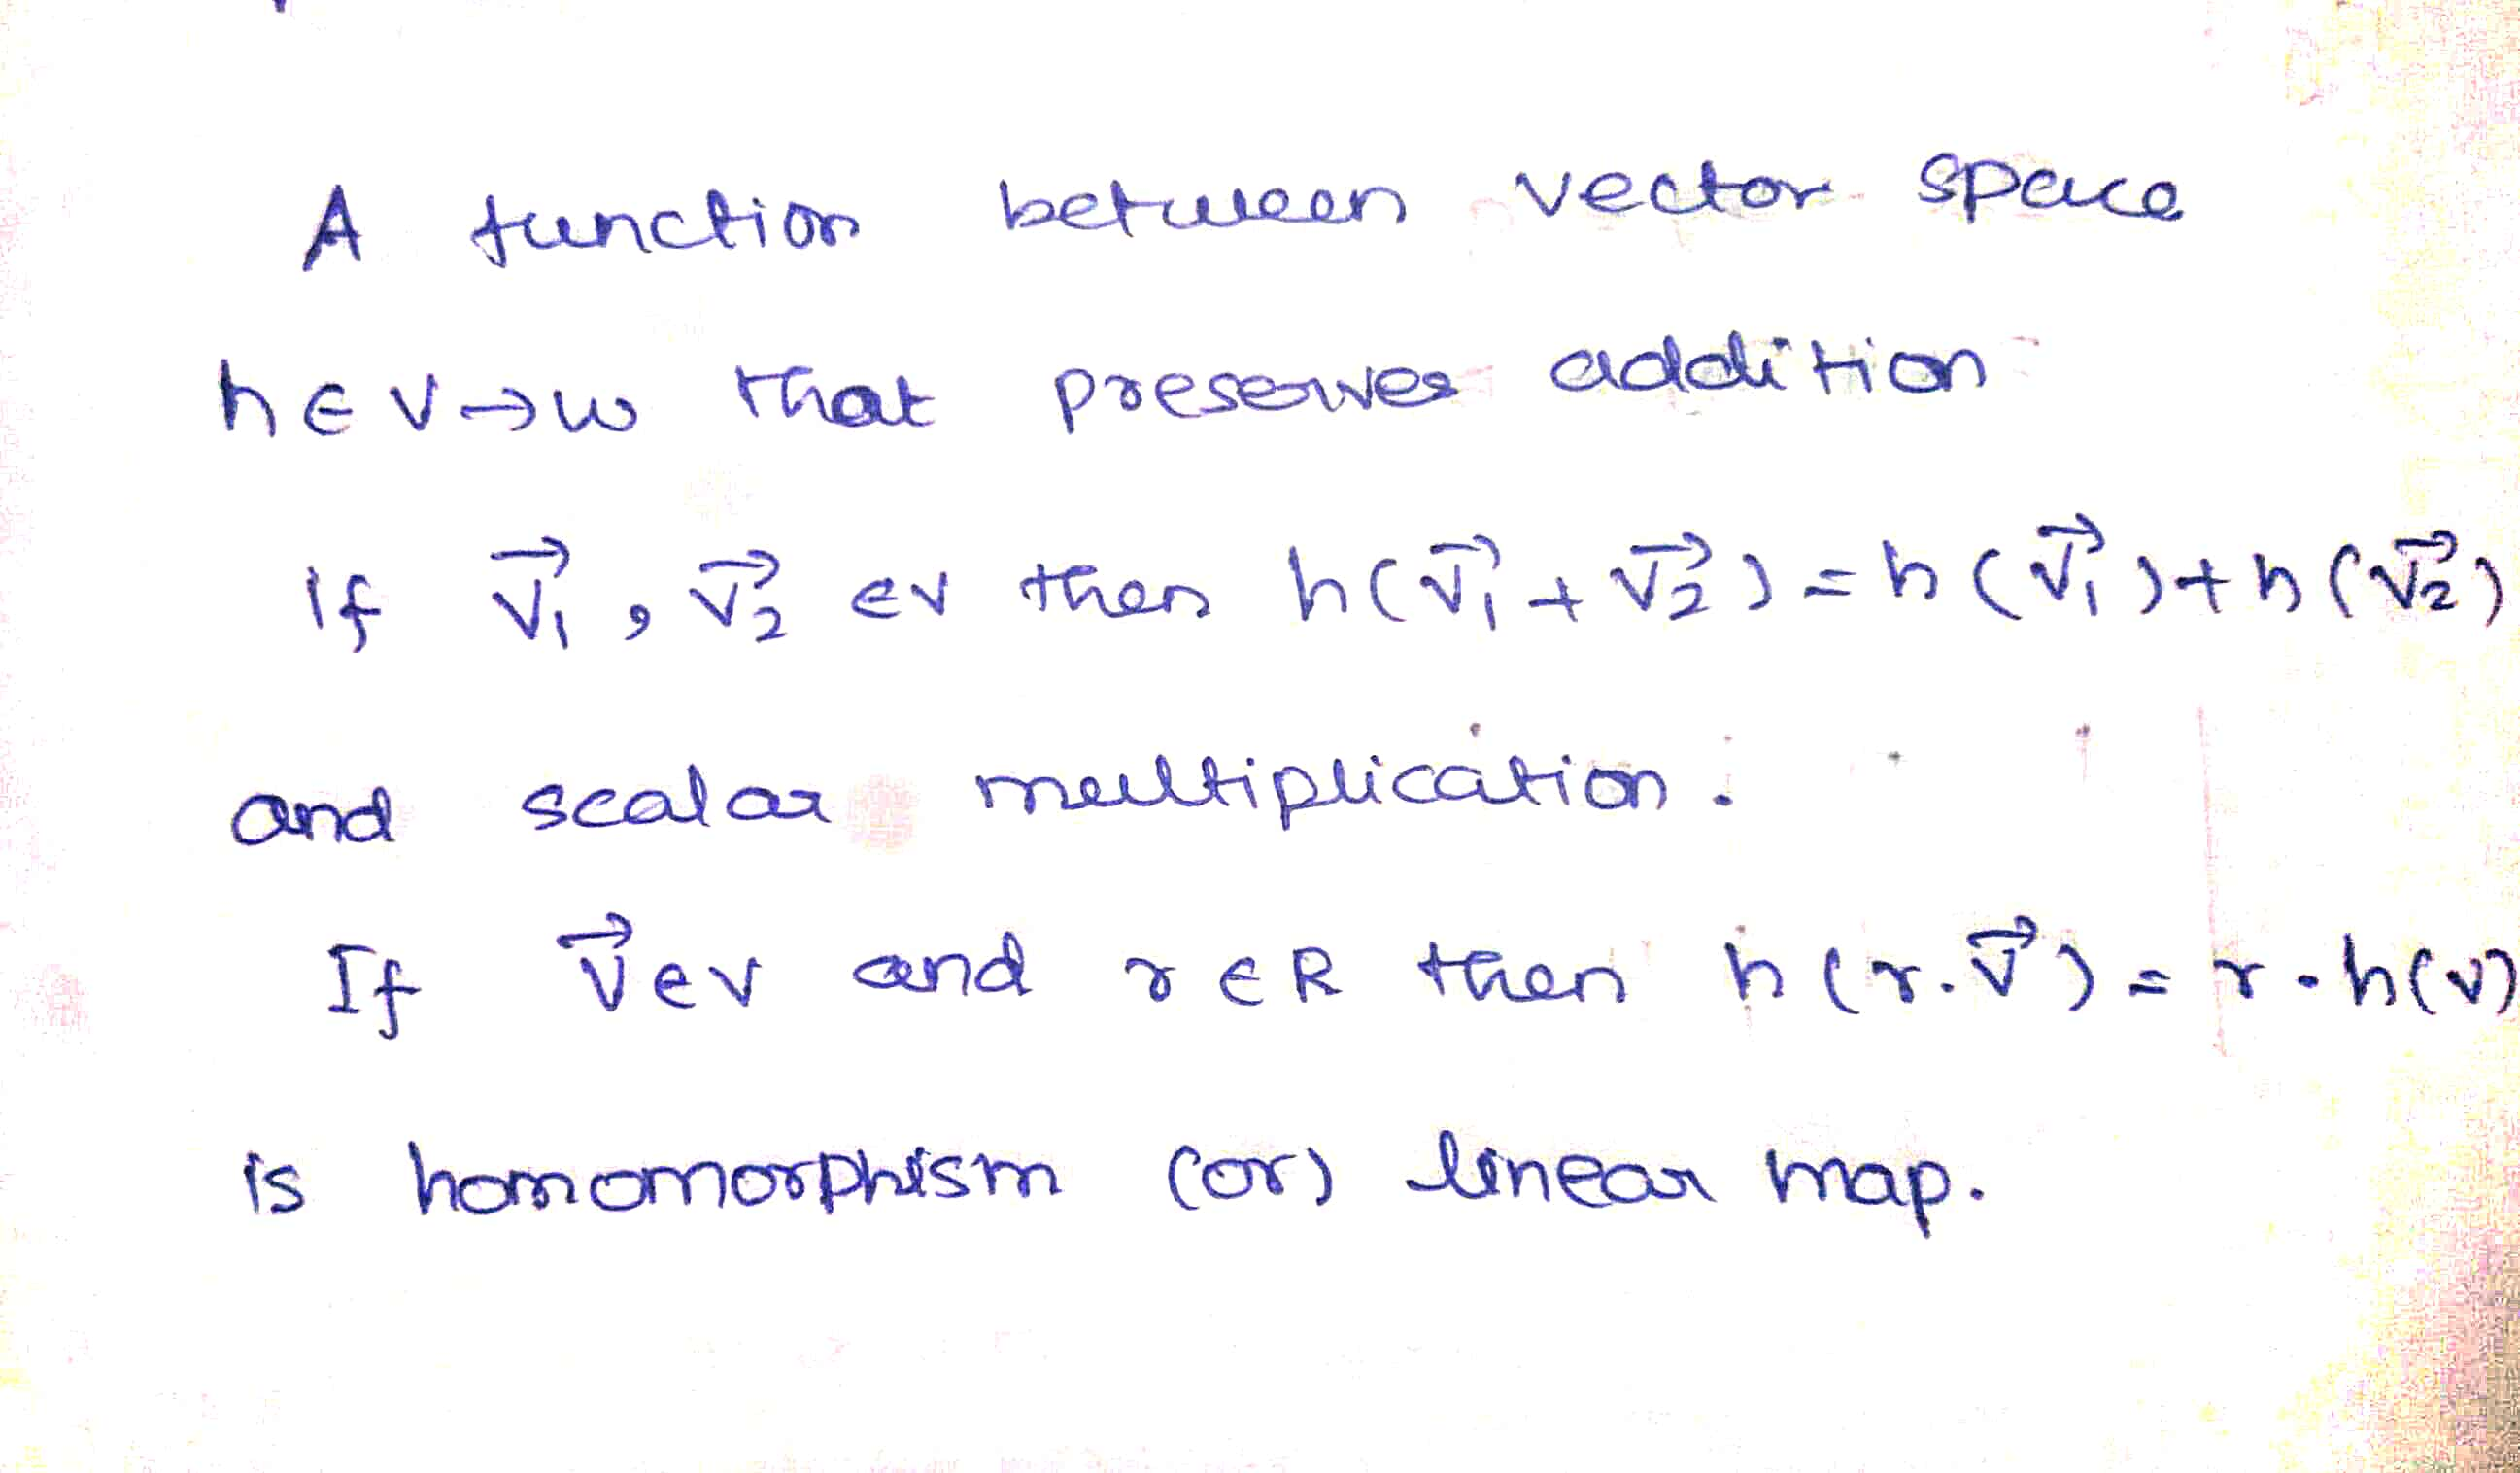 A function between vector space
h ∈ V → w that preserves addition
if v⃗₁, v⃗₂ ∈ V then h(v⃗₁ + v⃗₂) = h(v⃗₁) + h(v⃗₂)
and scalar multiplication.
If v⃗ ∈ V and r ∈ R then h(r.v⃗) = r.h(v)
is homomorphism (or) linear map.